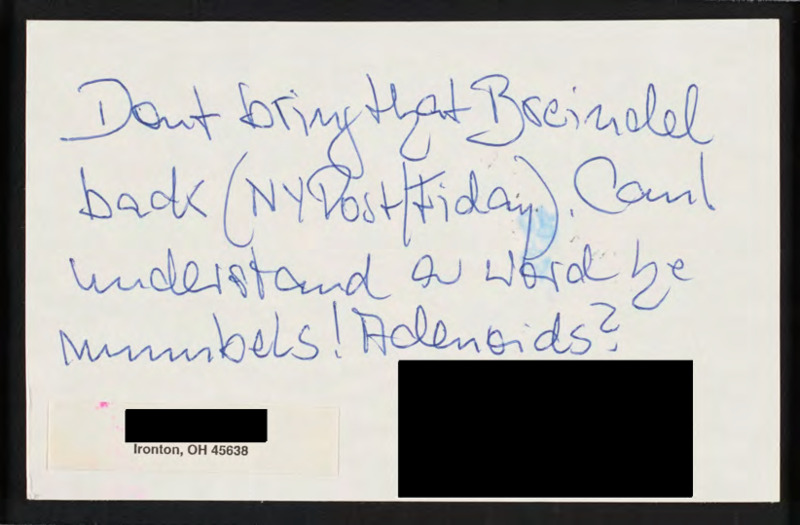 Dont bring that Breindel
back (NYPost/Friday). Cant
understand a word he
mumbels! Adenoids?
Ironton, OH 45638